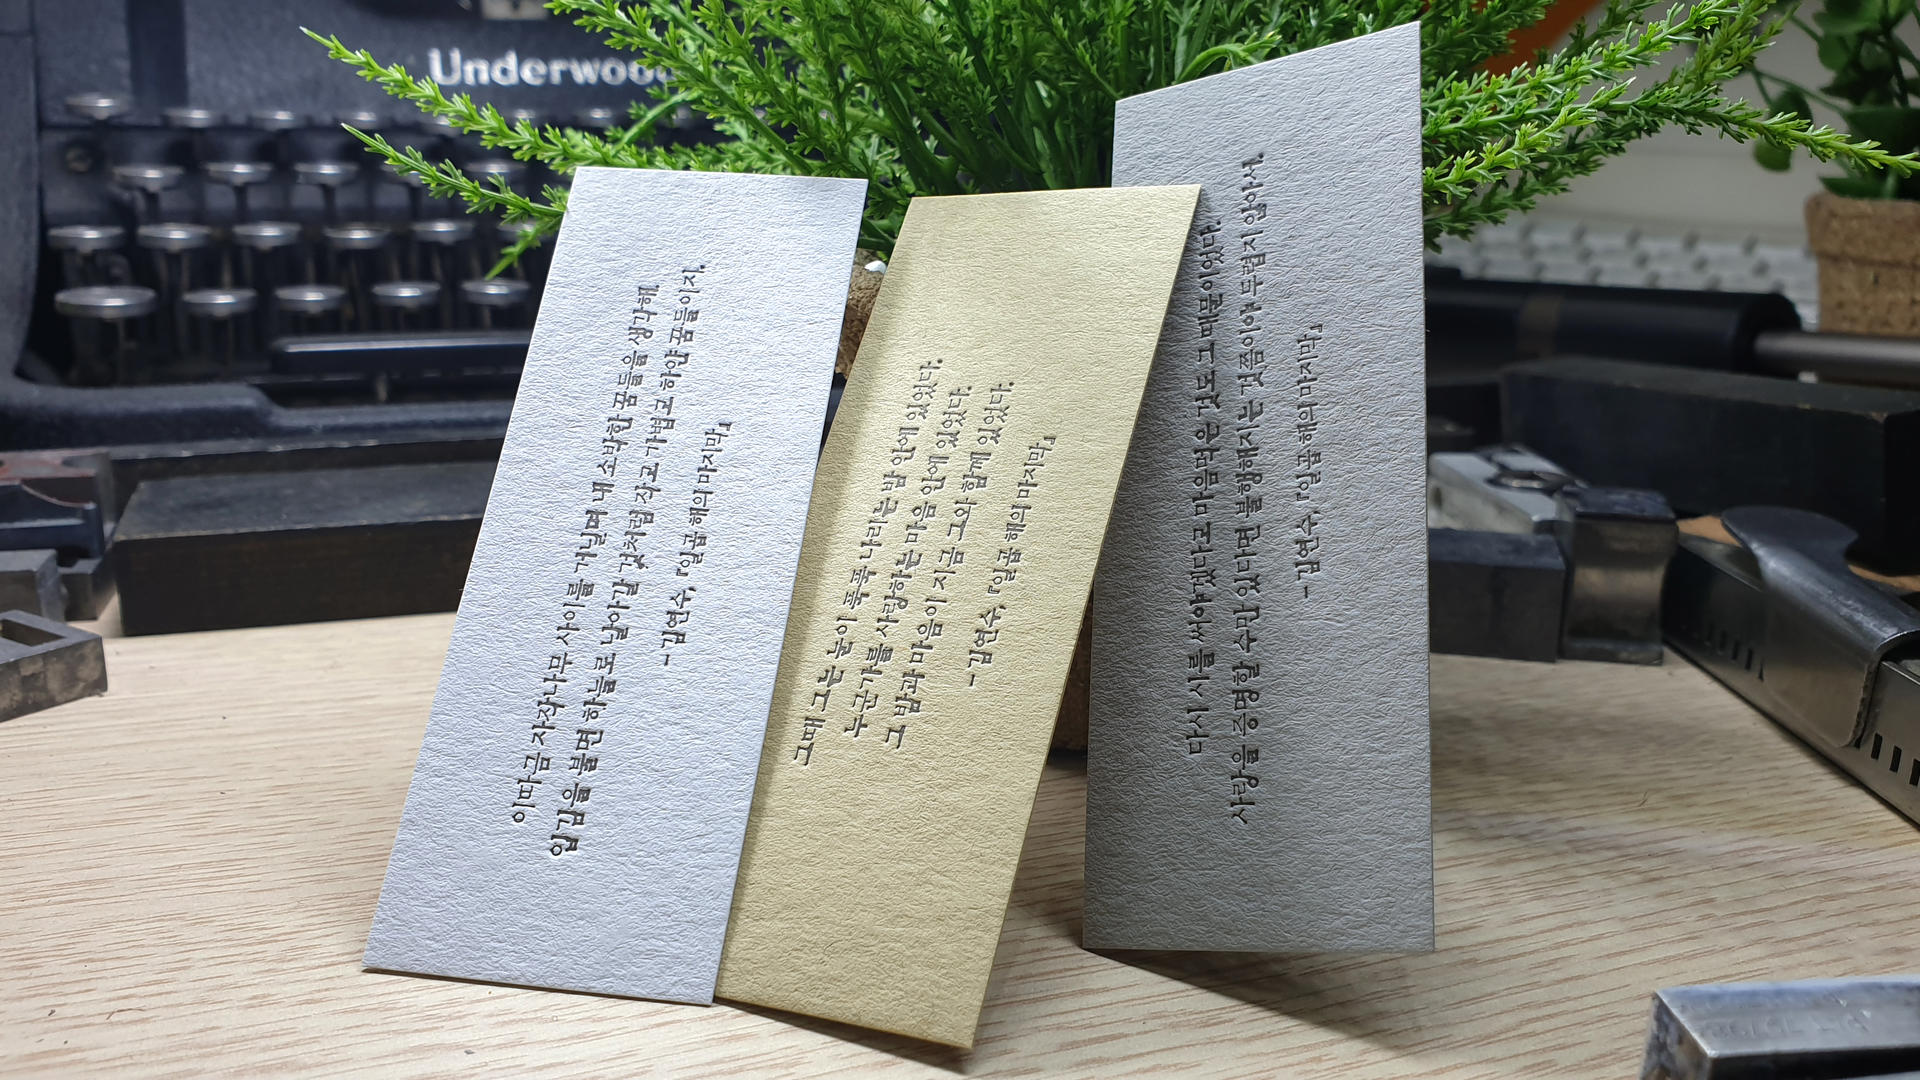 Underwood
이따금 자작나무 사이를 거닐며 내 소박한 꿈들을 생각해
입김을 불면 하늘로 날아갈 것처럼 작고 가볍고 하얀 꿈들이지.
- 김연수, 『일곱 해의 마지막』
그때 그는 눈이 푹푹 나리는 밤 안에 있었다.
누군가를 사랑하는 마음 안에 있었다.
그 밤과 마음이 지금 그와 함께 있었다.
- 김연수, 『일곱 해의 마지막』
다시 시를 써야겠다고 마음먹은 것도 그 때문이었다.
사랑을 증명할 수만 있다면 불행해지는 것쯤이야 두렵지 않아서.
- 김연수, 『일곱 해의 마지막』